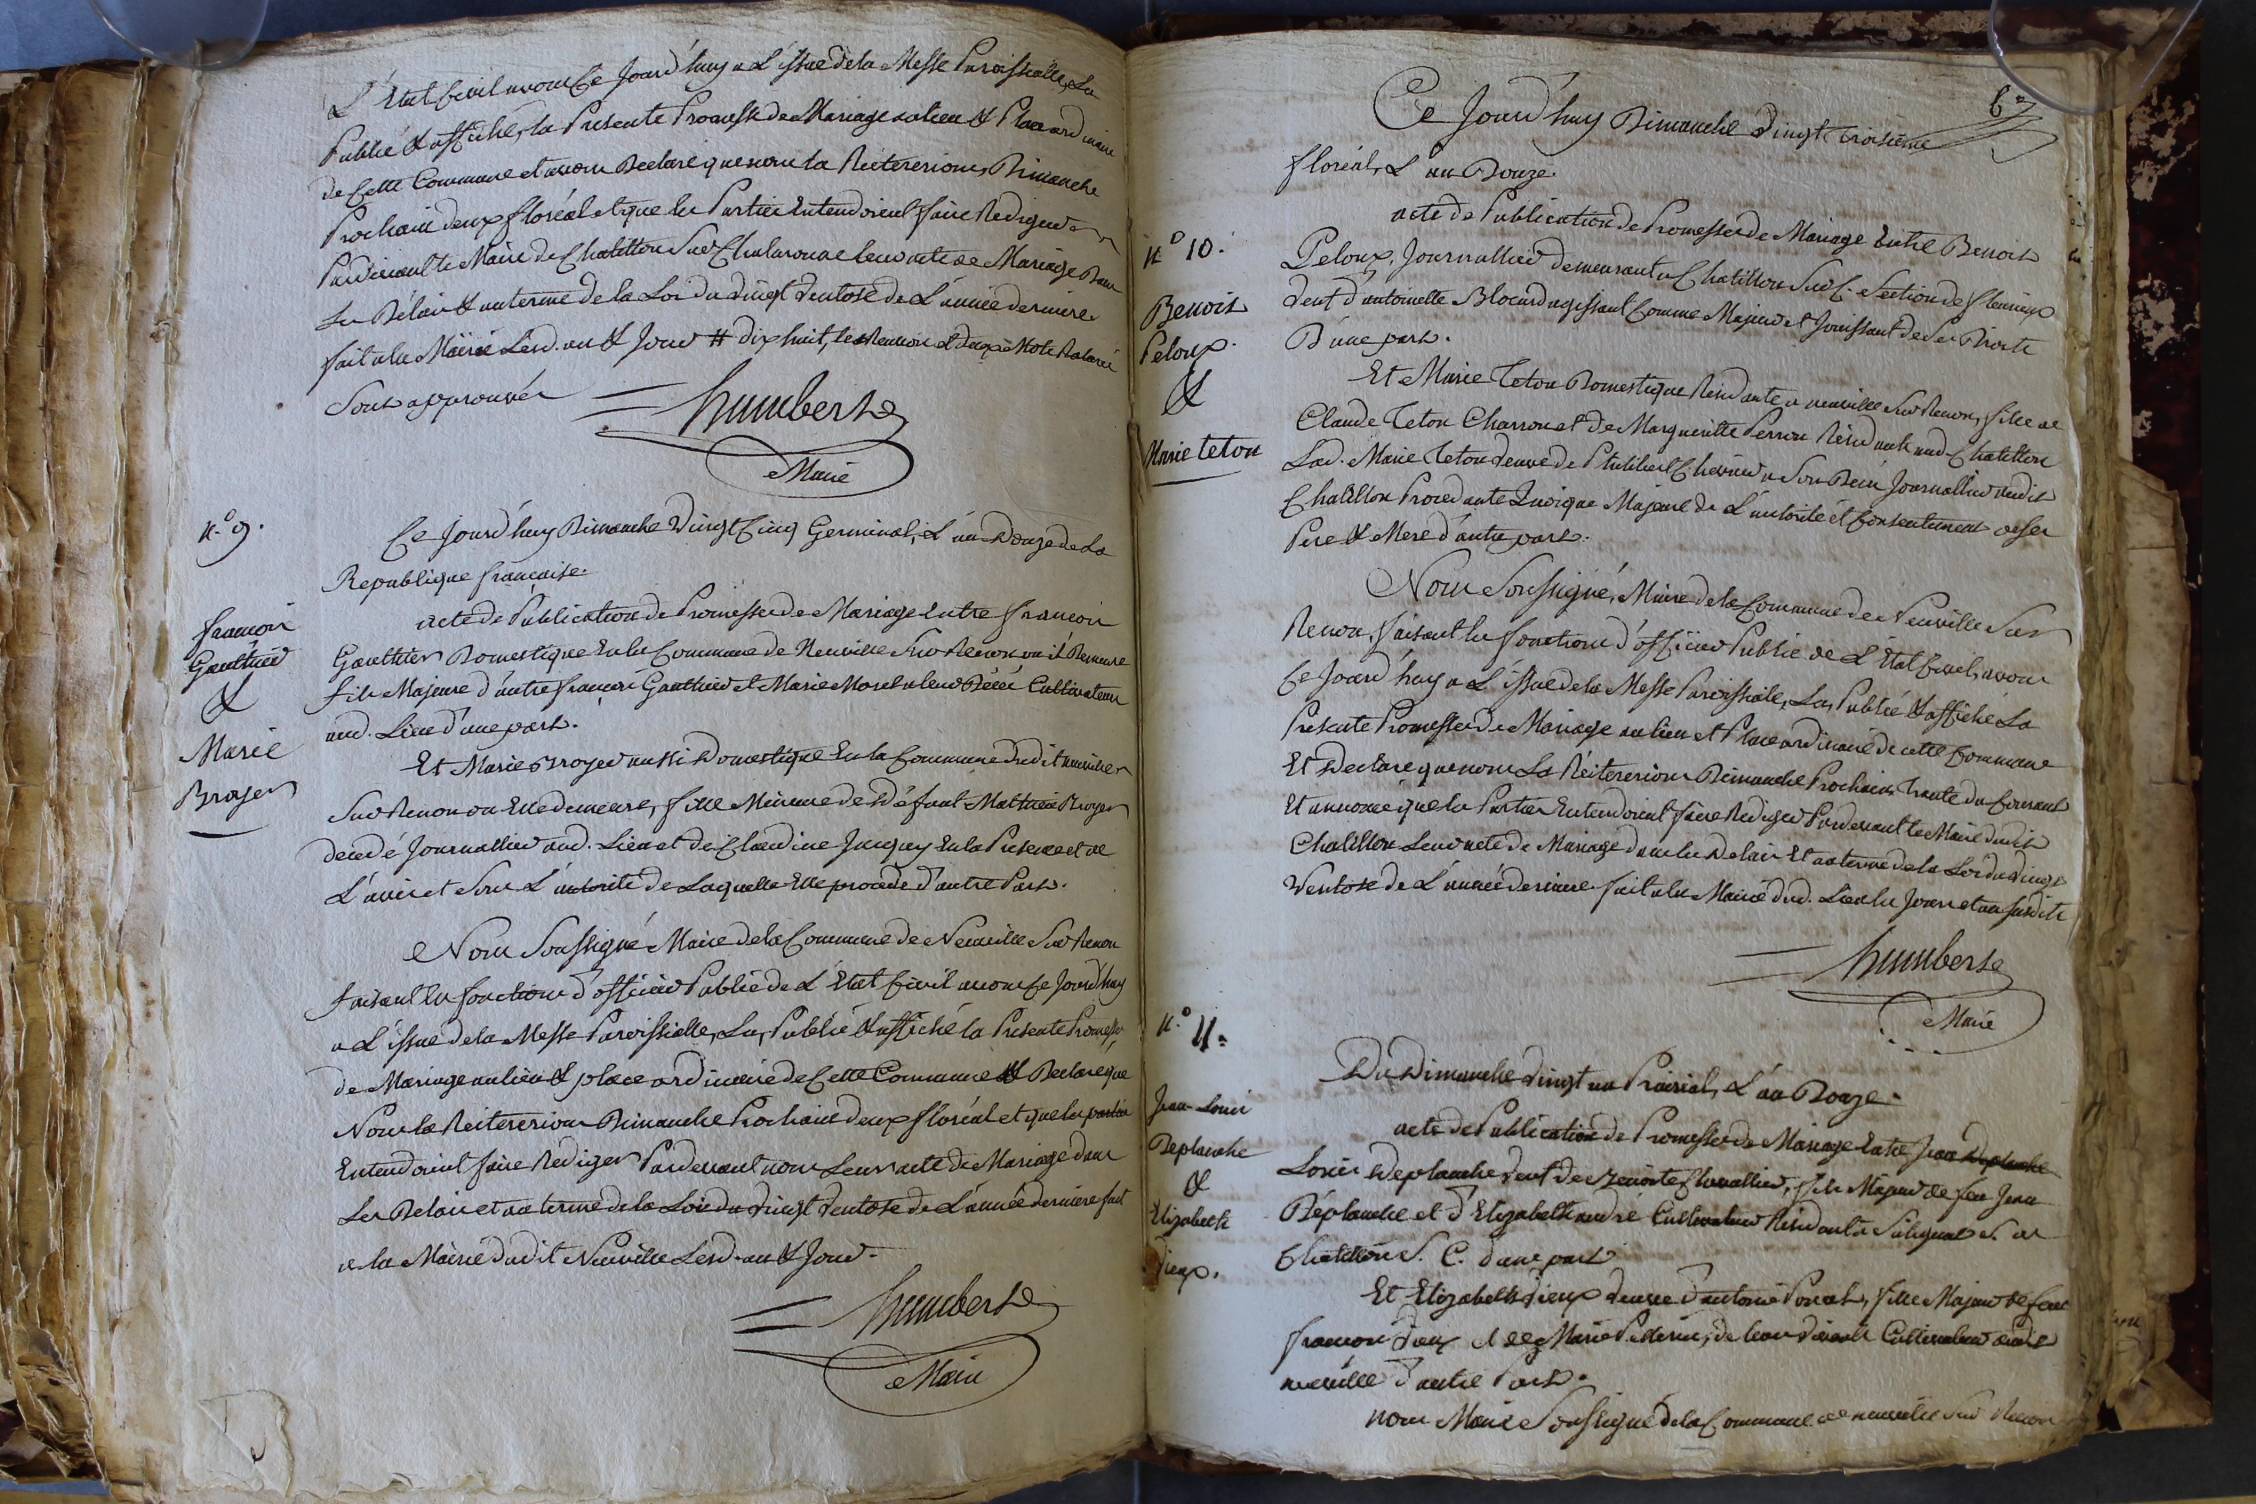 L'Etat Civil avons Ce Jourd'huy a L'issue de la Messe Paroissialle, Lu
Publié & affiché, la Presente Promesse de Mariage au lieu & Place ordinaire
de Cette Commune et avons Declaré que nous la Reitererions Dimanche
Prochain deux floréal et que les Parties Entendoient faire Rediger
Pardevant le Maire de Chatillon Sur Chalaronne leur acte de Mariage Dans
Les Délais & au terme de la Loi du vingt Ventose de L'année derniere
fait a la Mairie Lesd. an & Jour # dix huit, Le Renvoi et deux Mots
Sont approuvés
humbert
Maire
N.º 9.
françois
Gauthier
&
Marie
Broyer
Ce Jourd'huy Dimanche Vingt Cinq Germinal, L'an Douze de La
Republique française.
acte de Publication de Promesse de Mariage Entre françois
Gauthier Domestique En la Commune de Neuville Sur Renon ou il Demeure
fils Majeure d'autre françois Gauthier et Marie Morel Cultivateurs
aud. Lieu d'une part.
Et Marie Broyer aussi Domestique En la Commune dudit neuville
Sur Renon ou Elle demeure, fille Mineure de Défunt Mathieu Broyer
décédé Journallier aud. Lieu et de Claudine Jacquey En la Presence et de
L'avis et Sous L'autorité de Laquelle Elle procede d'autre Part.
Nous Soussigné Maire de la Commune de Neuville Sur Renon
faisant les fonctions d'officier Public de L'Etat Civil avons Ce Jourd'huy
a L'issue de la Messe Paroissialle, Lu, Publié & affiché la Presente Promesse
de Mariage au lieu & place ordinaire de Cette Commune & Declaré que
Nous la Reitererions Dimanche Prochain deux floréal et que les parties
Entendoient faire Rédiger Pardevant nous Leur acte de Mariage dans
Les Delais et au terme de la Loi du vingt Ventose de L'année derniere fait
a la Mairie dudit Neuville Lesd. an & Jour.
humbert
Maire
Ce Jourd'huy Dimanche Vingt troisieme
floréal, L'an Douze.
N.º 10.
Benoit
Peloux
&
Marie teton
acte de Publication de Promesse de Mariage Entre Benoit
Peloux, Journallier demeurant a Chatillon Sur C. Section de fleurieux
veuf d'antoinette Blocard agissant Comme Majeur et Jouissant de Ses Droits
D'une part.
Et Marie Teton Domestique Residante a neuville Sur Renon, fille de
Claude Teton Charron et de Margueritte Perron Residants aud. Chatillon
Lad. Marie Teton veuve de Philibert Journallier audit
Chatillon Procedante Quoique Majeure de L'autorité et Consentement de Ses
Pere & Mere d'autre part.
Nous Soussigné, Maire de la Commune de Neuville Sur
Renon, faisant les fonctions d'officier Public de L'Etat Civil, avons
Ce Jourd'huy a L'issue de la Messe Paroissiale, Lu, Publié & affiché La
Presente Promesse de Mariage au lieu et Place ordinaire de cette Commune
Et Declaré que nous La Reitererions Dimanche Prochain Trente du Courant
Et annoncé que les Parties Entendoient faire Rediger Pardevant le Maire dudit
Chatillon Leur acte de Mariage dans les Delais Et au terme de la Loi du vingt
Ventose de L'année derniere fait a la Mairie dud. Lieu les Jour et an susdits
humbert
Maire
N.º 11.
Jean Louis
Deplanche
&
Elizabeth
Dieux.
Du Dimanche vingt un Prairial, L'an Douze.
acte de Publication de Promesse de Mariage Entre Jean Deplanche
Louis Deplanche veuf de Chevallier, fils Majeur de feu Jean
Déplanche et d'Elizabeth andré Cultivateur Residant a S. de
Chatillon S. C. d'une part
Et Elizabeth Dieux veuve d'antoine, fille Majeure de feu
françois Dieux et de Marie, de leur vivant Cultivateurs audit
neuville d'autre Part.
nous Maire Soussigné de la Commune de neuville Sur Renon